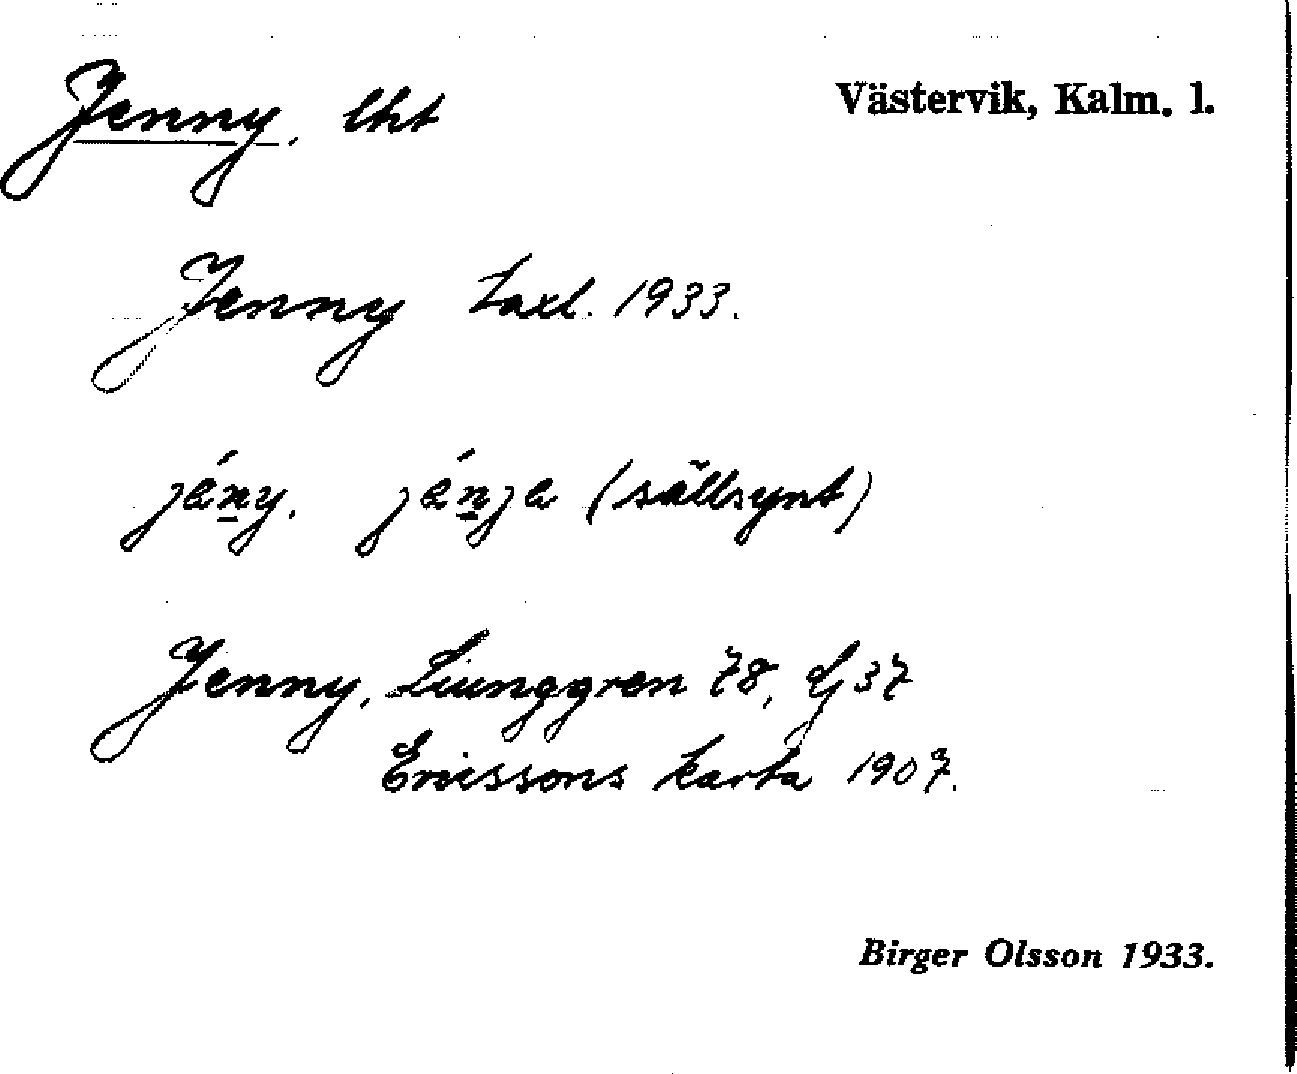 Jenny, lht
Västervik, Kalm. l.
Jenny taxl. 1933.
jén̲y. jén̲ja (sällsynt)
Jenny, Liunggren 78, Lj 37
Ericssons karta 1907.
Birger Olsson 1933.